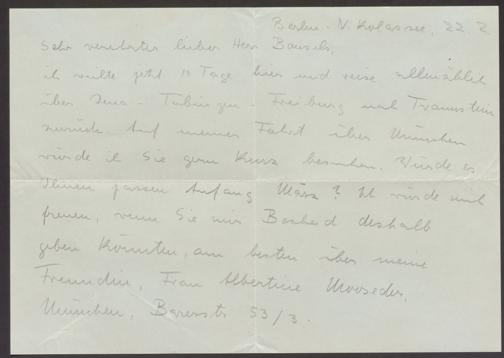 Berlin - N.kolassee, 22. 2
Sehr verehrter lieber Herr Bonsels,
ich weilte jetzt 10 Tage hier und reise allmählich
über Jena - Tübingen - Freiburg nach Traunstein
zurück. Auf meiner Fahrt über München
würde ich Sie gern kurz besuchen. Würde es
Ihnen passen Anfang März? Ich würde mich
freuen, wenn Sie mir Bescheid deshalb
geben könnten, am besten über meine
Freundin, Frau Albertine Mooseder,
München, Barerstr 53/3.